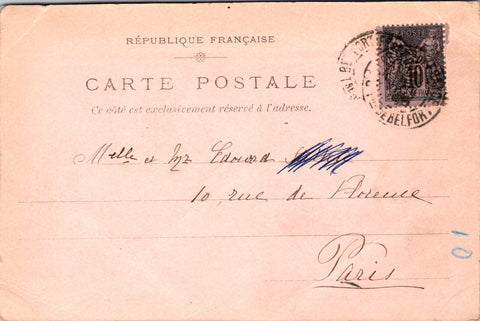 RÉPUBLIQUE FRANÇAISE
CARTE POSTALE
Ce côté est exclusivement réservé à l'adresse.
10
BELFORT
Melle et Edouard
10, rue de Florence
Paris
10